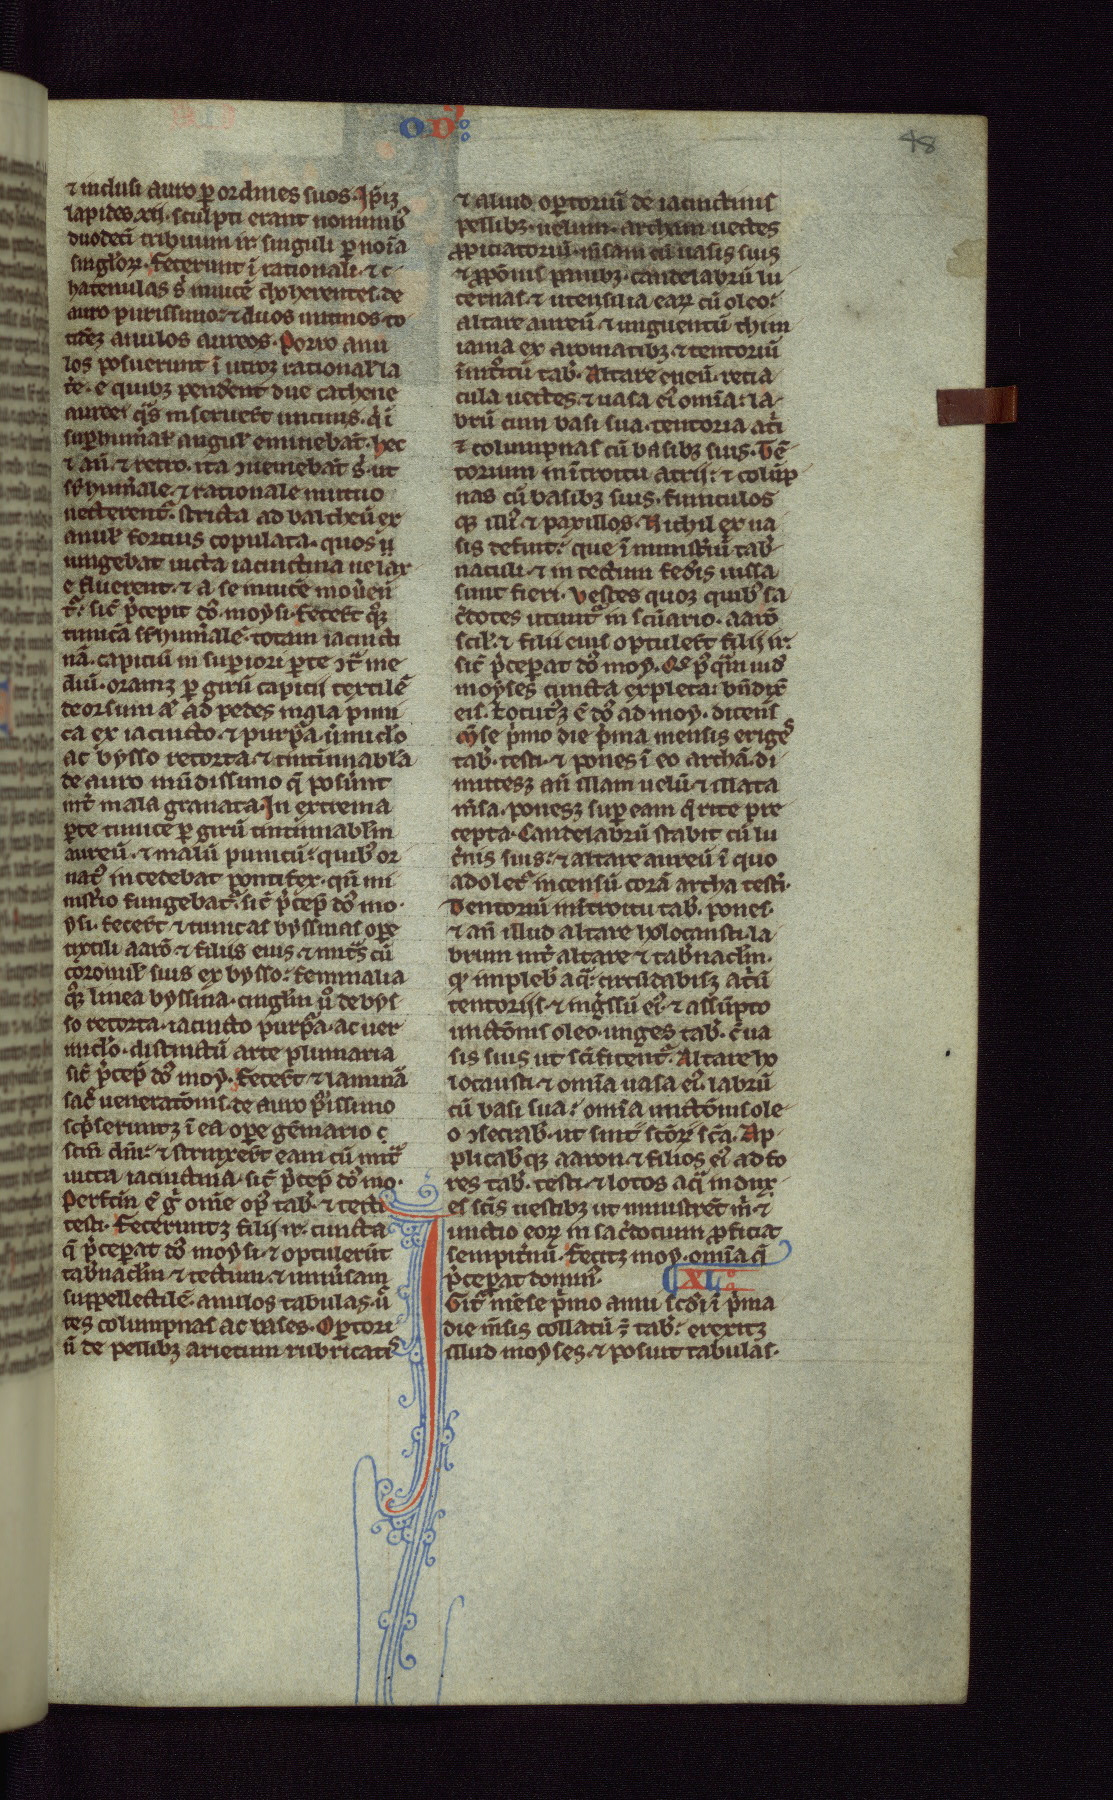 OD⁹
48
⁊ inclusi auro ꝑ ordines suos. Ipiz
lapides .xii. sculpti erant nominib᷒
duodeci tribuum isr singuli ꝑ noīa
singloꝝ. Fecerunt ī rationali ⁊ c
hatenulas s᷒ inuicē choherentes de
auro purissimo: ⁊ duos uncinos to
tidez anulos aureos. Porro anu
los posuerunt ī utroz rational la
tere e quibz penderent due cathene
auree qs inseruert uncinis. qi ī
suꝑhumal angul eminebāt. hec
⁊ an ⁊ retro. ita ueniebāt s᷒ ut
suhumale ⁊ rationale mutuo
necterent. stricta ad baltheū ex
anul fortius copulata. quos iū
ungebat uicta iacinctina ne lax
e fluerent ⁊ a se inuicē mouen
t. sic p̄cepit do᷒ moysi. fecert qz
tunicā suhumale totam iacincti
nā. capiciū in superiori ꝑte ɔt me
diū. oramz ꝑ girū capicii textilē
deorsum a ad pedes mala puni
ca ex iacincto ⁊ purpa. umiclo
ac bysso retorta ⁊ tintinnabla
de auro mūdissimo q̄ posūnt
int mala granata. In extrema
ꝑte tunice ꝑ girū tintinnablm
aureū. ⁊ malū punicū: quib᷒ or
nat᷒ incedebat pontifex. qn mi
nistio fungebat. sic p̄cep do᷒ mo
ysi. fecert ⁊ tunicas byssinas oꝑe
textili aarō ⁊ filiis eius. ⁊ mitras cū
coronul suis ex bysso: feminalia
qz linea byssina. cinglm u᷒ de bys
so retorta. iacincto purpa. ac uer
miclo. distinctū arte plumaria
sic p̄cep do᷒ moy. fecert ⁊ laminā
sac ueneratōnis. de auro purissimo
scpseruntz ī ea oꝑe gēmario c̄
sctm dni: ⁊ strinxert eam cū mitr
uitta iacinctina. sic p̄cep do᷒ mo.
Perfctm ē g om̄e op᷒ tab. ⁊ tecti
testi. feceruntz filii isr. cuncta
q̄ p̄ceperat do᷒ moysi. ⁊ optulerūt
tabnaclm ⁊ tectum ⁊ uniūsam
suppellectilē. anulos tabulas. uc̄
tes columpnas ac bases. Optori
ū de pellibz arietum rubricatis
⁊ aliud opertoriū de iacinctinis
pellibz. uelum. archam uectes
ꝓpiciatoriū. msam cū uasis suis
⁊ ꝓpōnis panibz. candelabrū lu
cernas. ⁊ utensilia eaꝝ cū oleo.
altare aureū ⁊ unguentū thim
iama ex aromatibz. ⁊ tentoriū
introitū tab. Altare eneū. retia
cula uectes. ⁊ uasa ei᷒ omīa: la
brū cum basi sua. tentoria atri
⁊ columpnas cū basibz suis. Ten
torium in ītroitu atrii: ⁊ colūp
nas cū basibz suis. funiculos
qz illi᷒ ⁊ paxillos. Nichil ex ua
sis defuit: que ī ministiū tab
naculi. ⁊ in tectum fedis iussa
sunt fieri. Vestes quoz quib᷒ sa
cdotes utunt in scuario. aarō
scil ⁊ filii eius optulert filii isr:
sic p̄ceperat do᷒ moy. Qs p̄ qm uid
moyses cuncta expleta: bndix
eis. Locutz ē do᷒ ad moy. dicens
Mense p̄mo die p̄ma mensis eriges
tab. testi. ⁊ pones ī eo archā. di
mittesz an illam uelū. ⁊ illata
msa. ponesz super eam q̄ rite pre
cepta. Candelabrū stabit cū lu
cnis suis: ⁊ altare aureū ī quo
adolet incensū. corā archa testi.
Tentoriū introitu tab. pones.
⁊ an illud altare holocausti. la
brum int altare ⁊ tabnaclm.
qd impleb aq. circūdabisz atriū
tentoriis. ⁊ ingssū ei᷒ ⁊ assūpto
unctōnis oleo. unges tab. c̄ ua
sis suis ut scificent. Altare ho
locausti. ⁊ omīa uasa ei᷒. labrū
cū basi sua: omīa unctōnis ole
o ɔsecrab. ut sint scōꝝ scā. Ap
plicabqz aaron ⁊ filios ei᷒ ad fo
res tab. testi. ⁊ lotos aq indux
es scis uestibz ut ministrēt m. ⁊
unctio eoꝝ in sacdocium ꝓficiat
sempitnū. Fecitz moy. omīa q̄
p̄ceperat domin᷒.
XL
Igit mēse p̄mo anni scdi ī p̄ma
die msis collatū ē tab: erexitz
illud moyses. ⁊ posuit tabulas.